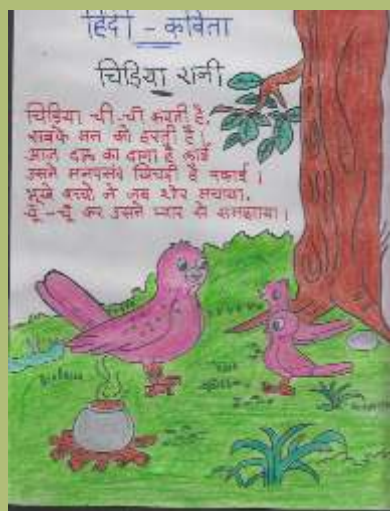 हिंदी - कविता
चिड़िया रानी
चिड़िया चीं-चीं करती है,
सबके मन को हरती है।
आज दाल का दाना है लाई
उसने मनपसंद खिचड़ी है पकाई।
भूखे बच्चों ने जब शोर मचाया,
चूँ-चूँ कर उसने प्यार से समझाया।